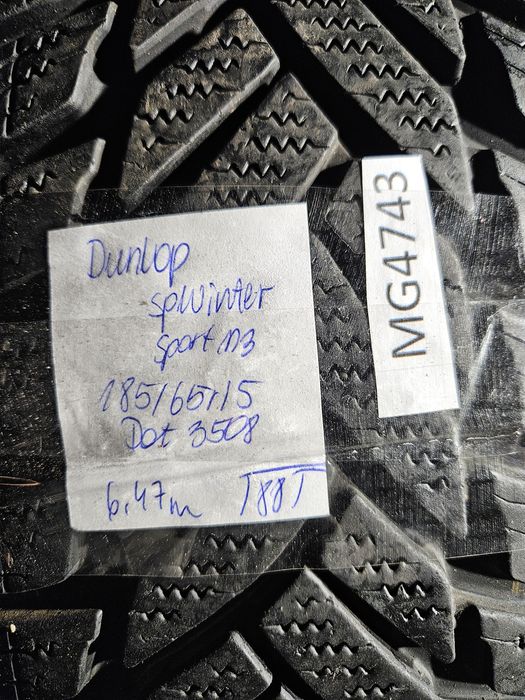 Dunlop
spWinter
sport M3
185/65r15
Dot 3508
6.47m T88T
MG4743